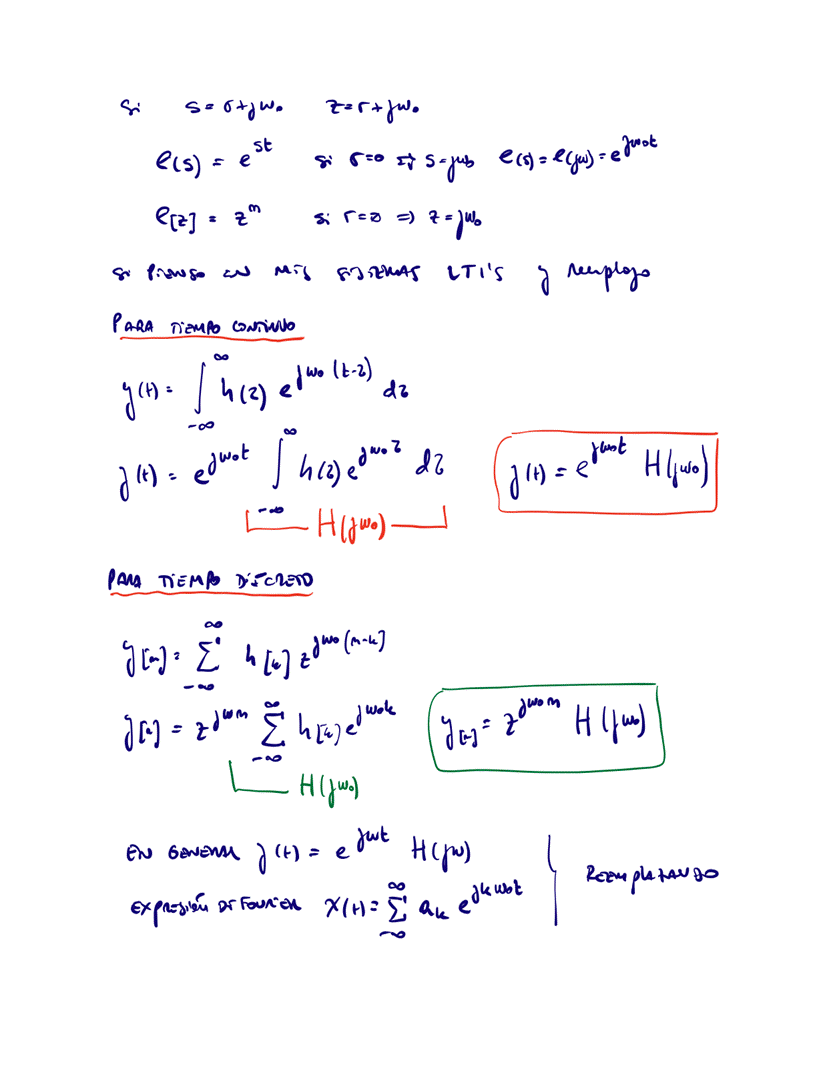 si s = σ + jω₀ z = r + jω₀
e(s) = e^{st} si σ=0 ⇒ s=jω₀ e(s) = e(jω) = e^{jω₀t}
e[z] = z^n si r=0 ⇒ z=jω₀
si pienso en mis sistemas LTI's y reemplazo
PARA TIEMPO CONTINUO
y(t) = ∫_{-∞}^{∞} h(τ) e^{jω₀(t-τ)} dτ
y(t) = e^{jω₀t} ∫_{-∞}^{∞} h(τ) e^{jω₀τ} dτ y(t) = e^{jω₀t} H(jω₀)
H(jω₀)
PARA TIEMPO DISCRETO
y[n] = Σ_{-∞}^{∞} h[k] z^{jω₀(n-k]}
y[n] = z^{jωn} Σ_{-∞}^{∞} h[k] e^{jω₀k} y[n] = z^{jω₀n} H(jω₀)
H(jω₀)
EN GENERAL y(t) = e^{jωt} H(jω)
EXPRESIÓN DE FOURIER x(t) = Σ_{-∞}^{∞} a_k e^{jkω₀t} REEMPLAZANDO